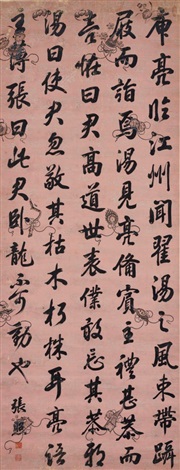 庾亮臨江州聞翟湯之風束帶躡
屐而詣焉湯見亮備賓主禮甚恭而
言曰君高道世表僕敢忘其恭耶
湯曰使君忽敬其枯木朽株耳亮語
主薄張曰此君卧龍不可動也 張照